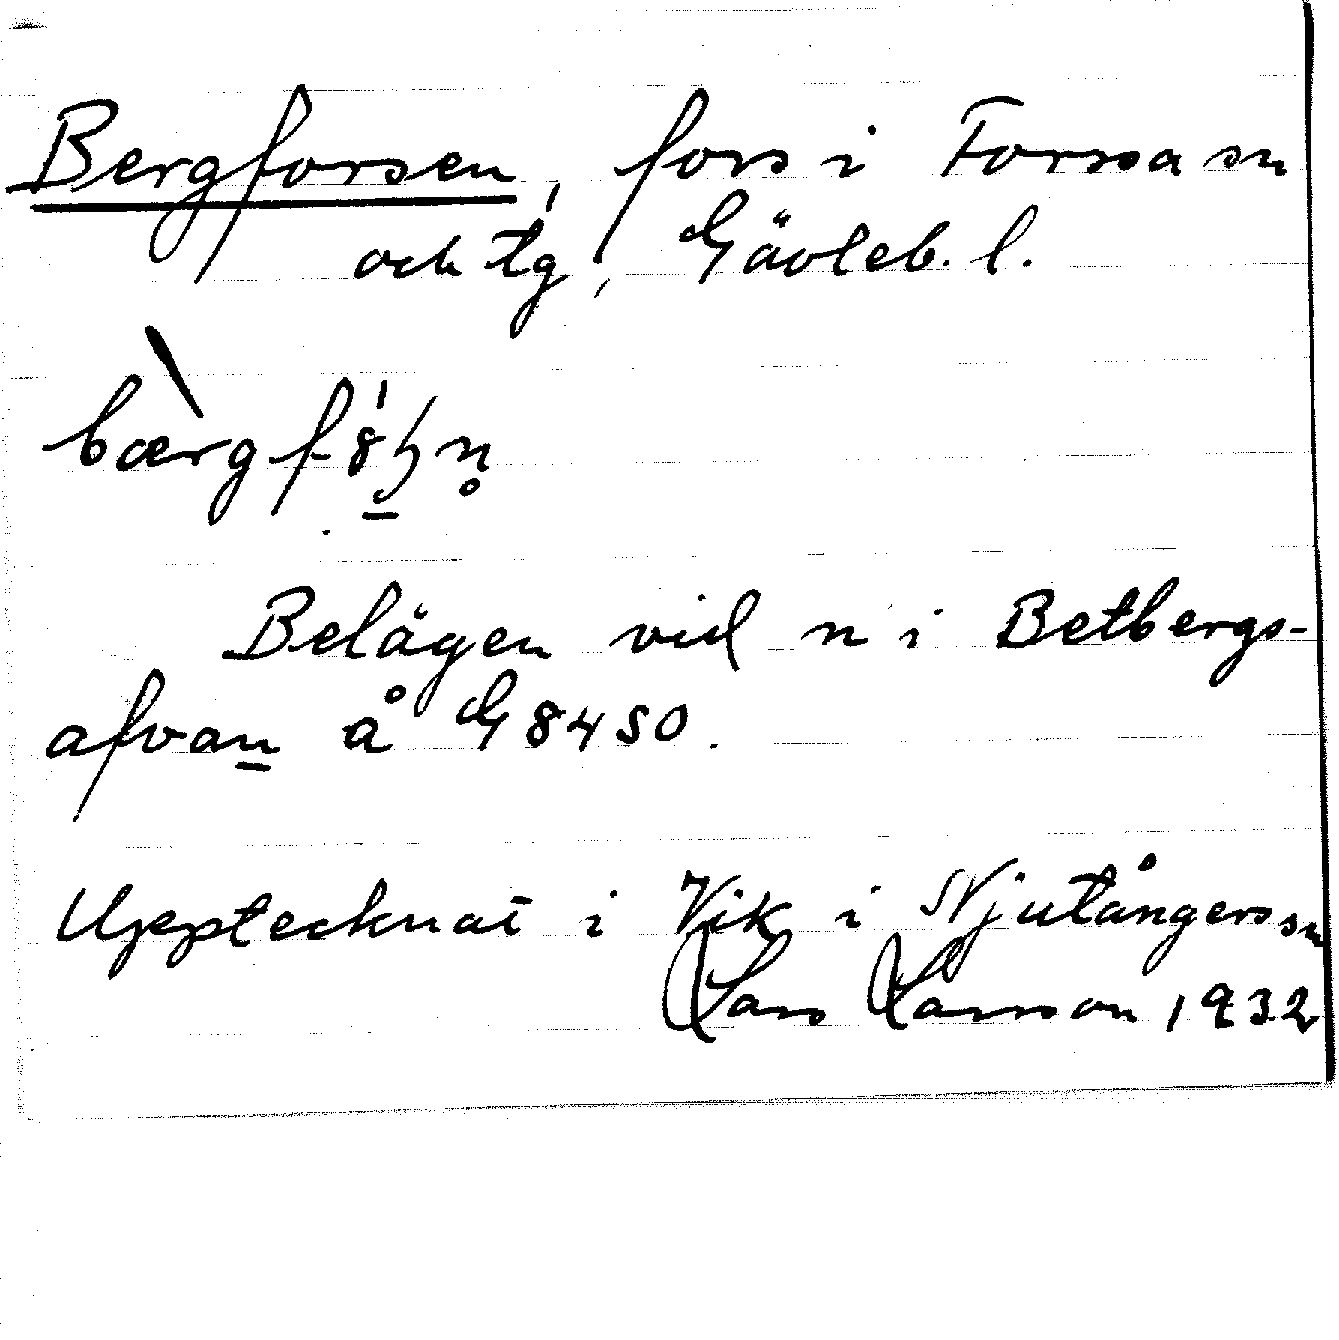 Bergforsen, fors i Forssa sn
och tg, Gävleb. l.
bærgf
Belägen vid n i Betbergs-
afvan å G 8450.
Upptecknat i Vik i Njutångers sn
Lars Larsson 1932